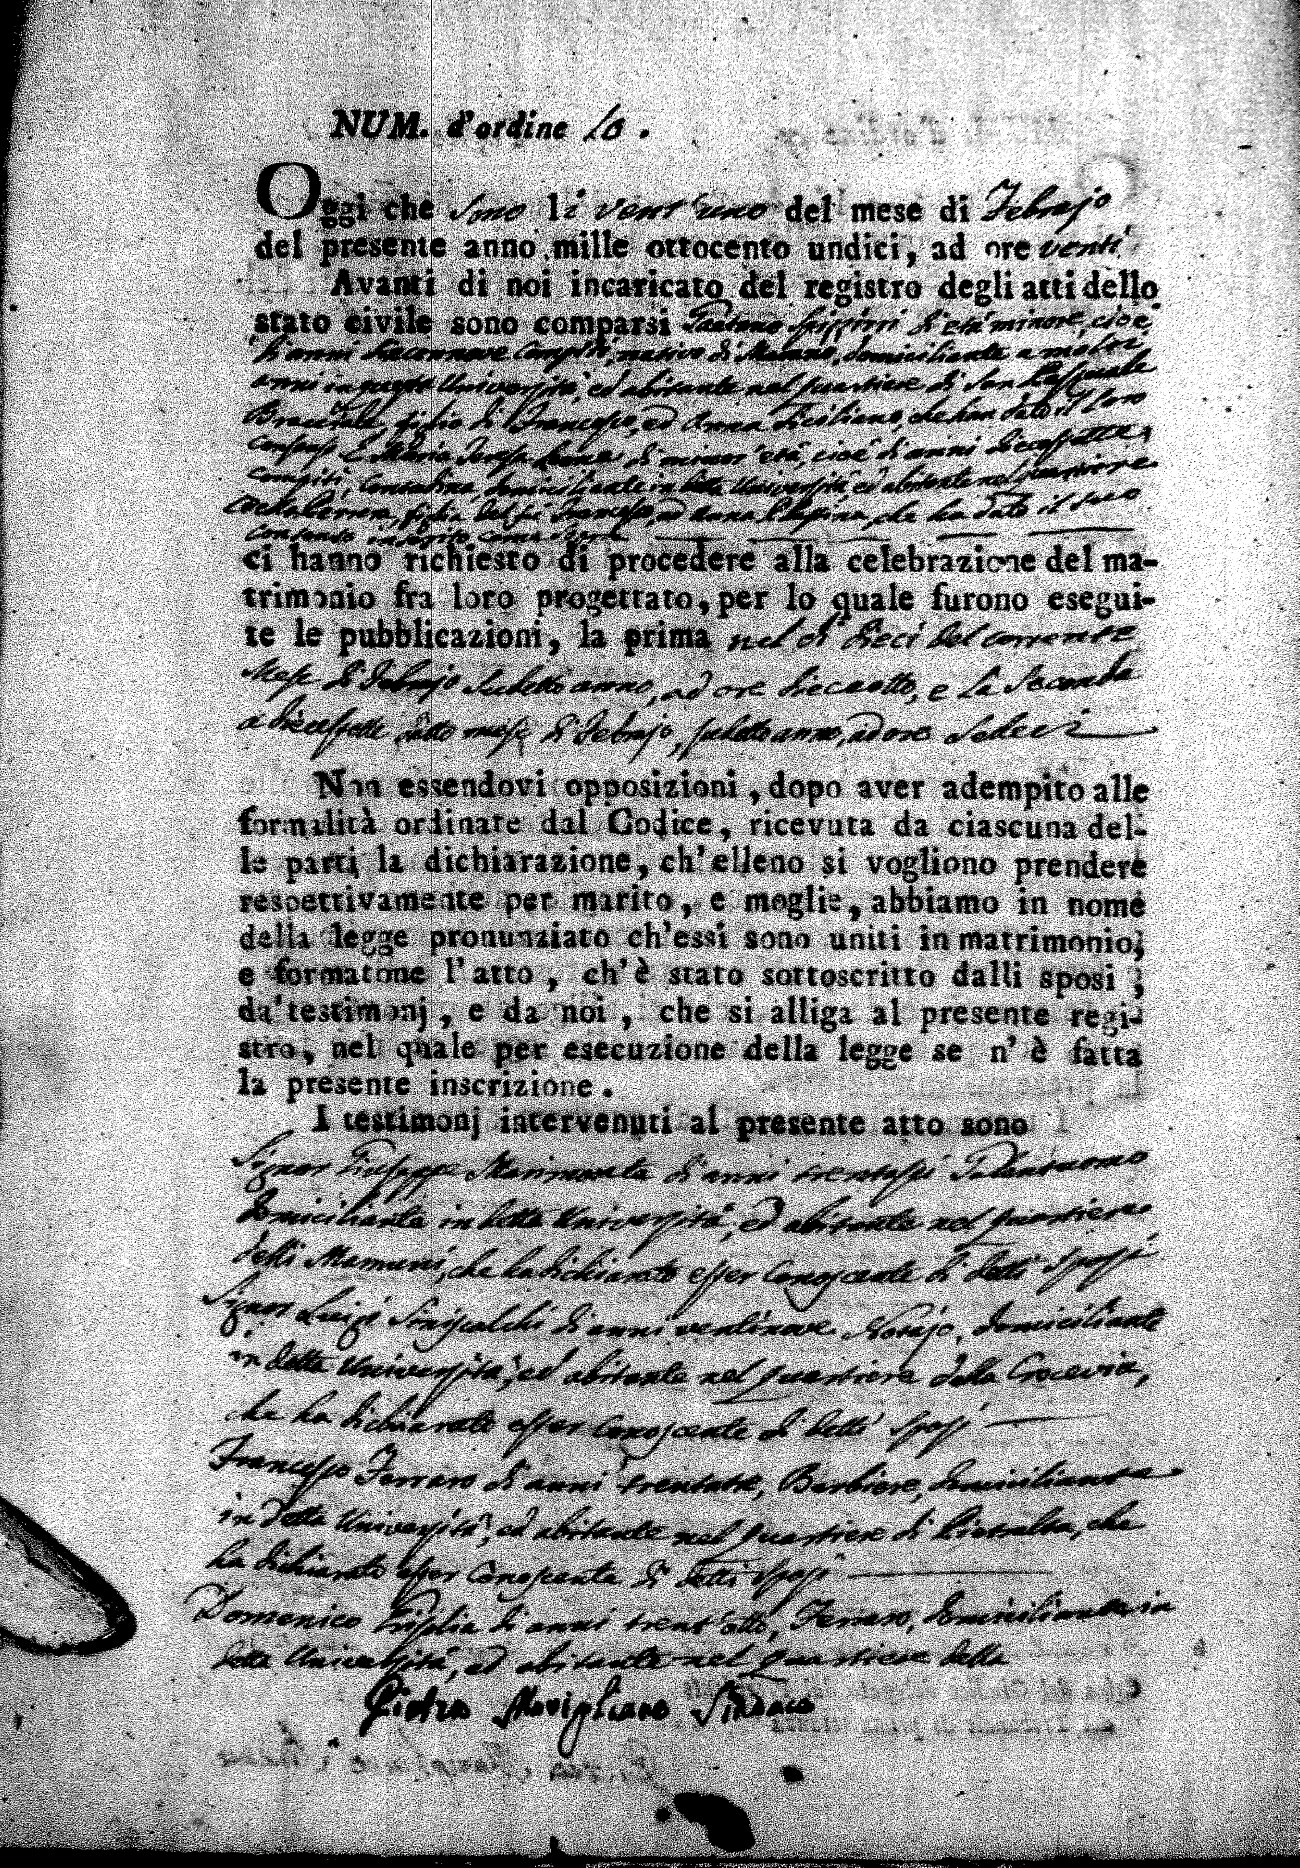 NUM. d'ordine 10.
Oggi che sono li vent'uno del mese di Febrajo
del presente anno mille ottocento undici, ad ore venti
Avanti di noi incaricato del registro degli atti dello
stato civile sono comparsi Gaetano di età minore, cioè
di anni diecennove compiti, nativo di domiciliante
anni in questa Università, ed abitante nel quartiere di San Pasquale
figlio di Francesco, ed Anna Siciliano, che han dato il loro
Maria Teresa di minor età, cioè di anni diecessette
compiti, Contadina, domiciliante in detta Università, ed abitante nel quartiere
figlia del fù Francesco, ed Anna che ha dato il suo
consenso come sopra
ci hanno richiesto di procedere alla celebrazione del ma-
trimonio fra loro progettato, per lo quale furono esegui-
te le pubblicazioni, la prima nel dì dieci del corrente
Mese di Febrajo sudetto anno, ad ore dieceotto, e la seconda
a diecessette detto mese di Febrajo, sudetto anno, ad ore sedeci
Non essendovi opposizioni, dopo aver adempito alle
formalità ordinate dal Codice, ricevuta da ciascuna del-
le parti la dichiarazione, ch'elleno si vogliono prendere
respettivamente per marito, e moglie, abbiamo in nome
della legge pronunziato ch'essi sono uniti in matrimonio;
e formatone l'atto, ch'è stato sottoscritto dalli sposi,
da'testimonj, e da noi, che si alliga al presente regi-
stro, nel quale per esecuzione della legge se n'è fatta
la presente inscrizione.
I testimonj intervenuti al presente atto sono
Signor Giuseppe Marimonte di anni trentasei Galantuomo
domiciliante in detta Università, ed abitante nel quartiere
delli Mammi, che ha dichiarato esser conoscente di detti sposi
Signor Luigi Siniscalchi di anni ventinove Notajo, domiciliante
in detta Università, ed abitante nel quartiere della Crocevia,
che ha dichiarato esser conoscente di detti sposi
Francesco Ferraro di anni trentatre, Barbiere, domiciliante
in detta Università, ed abitante nel quartiere di Pietralta, che
ha dichiarato esser conoscente di detti sposi
Domenico Triplia di anni trent'otto, Ferraro, domiciliante in
detta Università, ed abitante nel quartiere della
Pietro Marigliano Sindaco